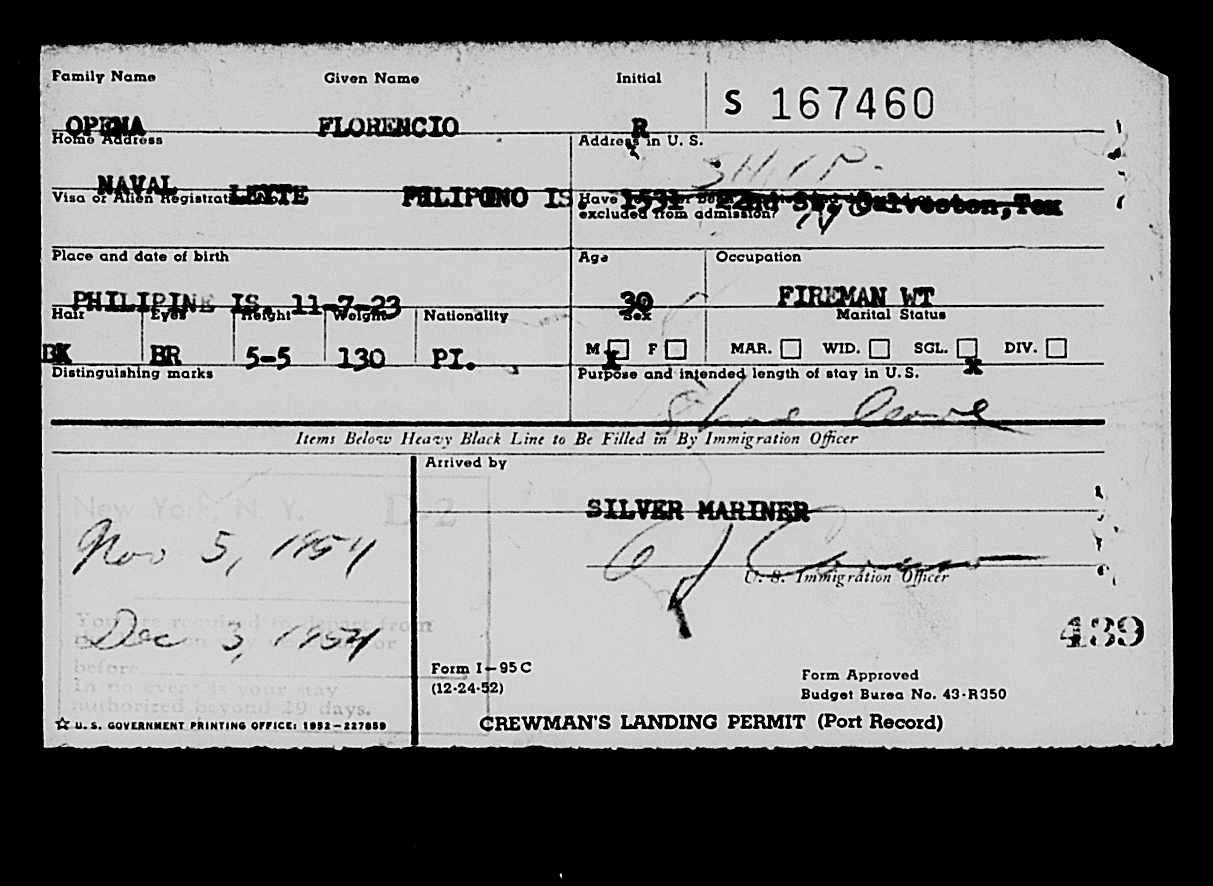 Family Name Given Name Initial
S 167460
OPENA FLORENCIO R
Home Address Address in U. S.
SHIP.
NAVAL LEYTE PHILIPONO IS. 1531 22nd St, Galveston, Tex
Visa or Alien Registration Have
excluded from admission? No
Place and date of birth Age Occupation
PHILIPINE IS. 11-7-23 30 FIREMAN WT
Hair Eyes Height Weight Nationality Sex Marital Status
BK BR 5-5 130 PI. M X F MAR. WID. SGL. X DIV.
Distinguishing marks Purpose and intended length of stay in U.S.
Shore Leave
Items Below Heavy Black Line to Be Filled in By Immigration Officer
Arrived by
New York, N. Y. D-2
SILVER MARINER
Nov 5, 1954
U. S. Immigration Officer
You are required to depart from
or
Dec 3, 1954
439
before
In no event is your stay
authorized beyond 29 days.
Form I-95 C
(12-24-52)
Form Approved
Budget Burea No. 43-R350
☆ U. S. GOVERNMENT PRINTING OFFICE: 1952-227959
CREWMAN'S LANDING PERMIT (Port Record)